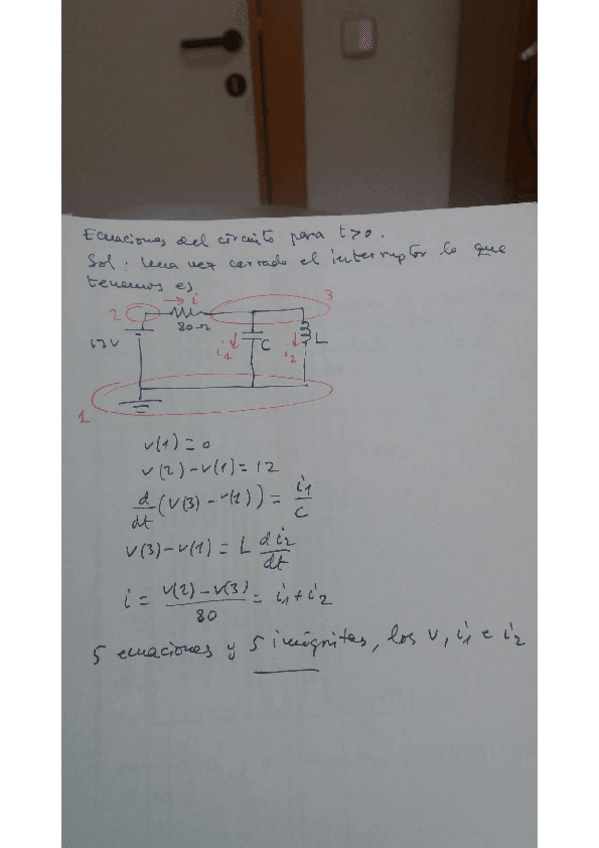 Ecuaciones del circuito para t>0.
Sol: Una vez cerrado el interruptor lo que
tenemos es
2 i 3
80Ω
12V i1 C i2 L
1
v(1) = 0
v(2) - v(1) = 12
d/dt (v(3) - v(1)) = i1/C
v(3) - v(1) = L d i2/dt
i = v(2) - v(3)/80 = i1 + i2
5 ecuaciones y 5 incógnitas, los v, i1 e i2